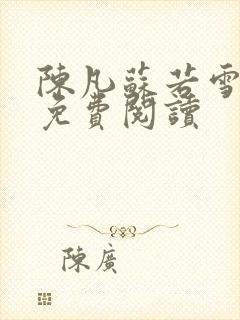 陳凡蘇若雪
免費閱讀
陳廣